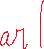 ar (